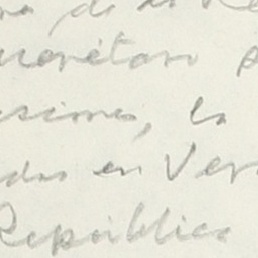 de la Re
uerétaro
siones, la
das en Ver
República